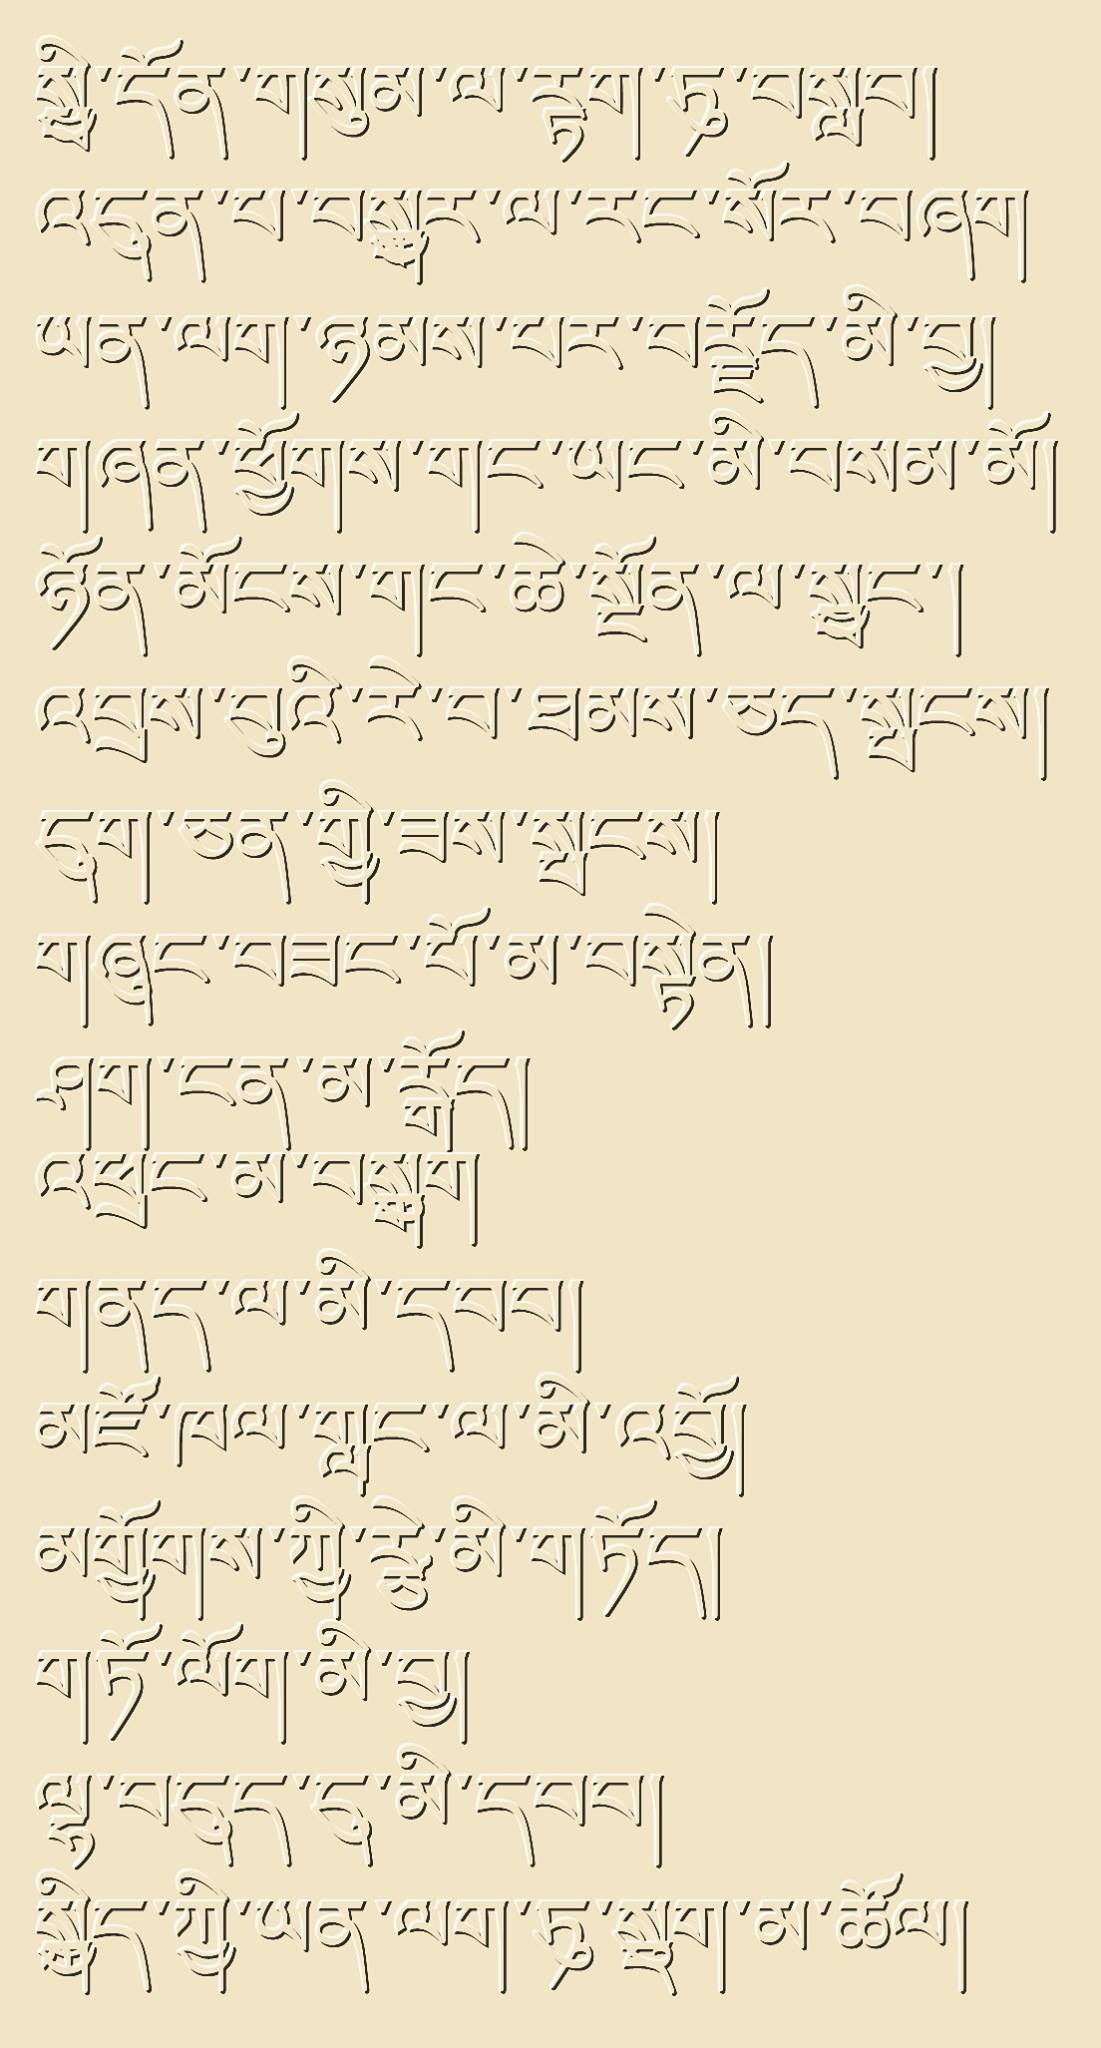 སྤྱི་དོན་གསུམ་ལ་རྟག་ཏུ་བསླབ།
འདུན་པ་བསྒྱུར་ལ་རང་སོར་བཞག
ཡན་ལག་ཉམས་པར་བརྗོད་མི་བྱ།
གཞན་ཕྱོགས་གང་ཡང་མི་བསམ་མོ།
ཉོན་མོངས་གང་ཆེ་སྔོན་ལ་སྦྱང་།
འབྲས་བུའི་རེ་བ་ཐམས་ཅད་སྤངས།
དུག་ཅན་གྱི་ཟས་སྤངས།
གཞུང་བཟང་པོ་མ་བསྟེན།
ཤག་ངན་མ་རྒོད།
འཕྲང་མ་བསྒུག
གནད་ལ་མི་དབབ།
མཛོ་ཁལ་གླང་ལ་མི་འབྱོ།
མགྱོགས་ཀྱི་རྩེ་མི་གཏོད།
གཏོ་ལོག་མི་བྱ།
ལྷ་བདུད་དུ་མི་དབབ།
སྐྱིད་ཀྱི་ཡན་ལག་ཏུ་སྡུག་མ་ཚོལ།